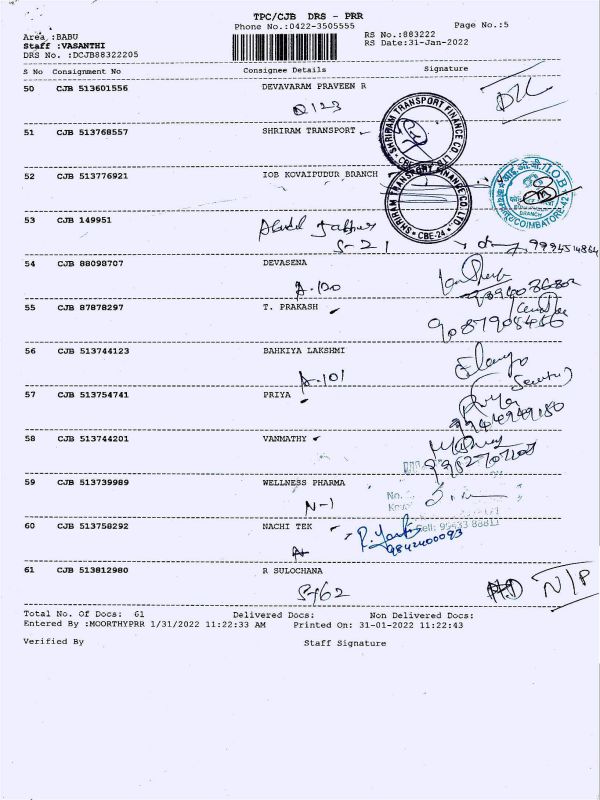 TPC/CJB DRS - PRR
Phone No.:0422-3505555
Page No.:5
Area :BABU
RS No.:883222
Staff :VASANTHI
RS Date:31-Jan-2022
DRS No. :DCJB88322205
S No Consignment No Consignee Details Signature
50 CJB 513601556 DEVAVARAM PRAVEEN R
Q123
51 CJB 513768557 SHRIRAM TRANSPORT
SHRIRAM TRANSPORT FINANCE CO. LTD.
CBE-24
52 CJB 513776921 IOB KOVAIPUDUR BRANCH
SHRIRAM TRANSPORT FINANCE CO. LTD.
CBE-24
IOB
BRANCH
COIMBATORE-42
53 CJB 149951
S-21
54 CJB 88098707 DEVASENA
A-100
55 CJB 87878297 T. PRAKASH
9087905456
56 CJB 513744123 BAHKIYA LAKSHMI
A-101
57 CJB 513754741 PRIYA
Priya
58 CJB 513744201 VANMATHY
59 CJB 513739989 WELLNESS PHARMA
N-1
No.
60 CJB 513758292 NACHI TEK
Cell: 95633 88811
9842400093
61 CJB 513812980 R SULOCHANA
S-162
N/P
Total No. Of Docs: 61 Delivered Docs: Non Delivered Docs:
Entered By :MOORTHYPRR 1/31/2022 11:22:33 AM Printed On: 31-01-2022 11:22:43
Verified By Staff Signature